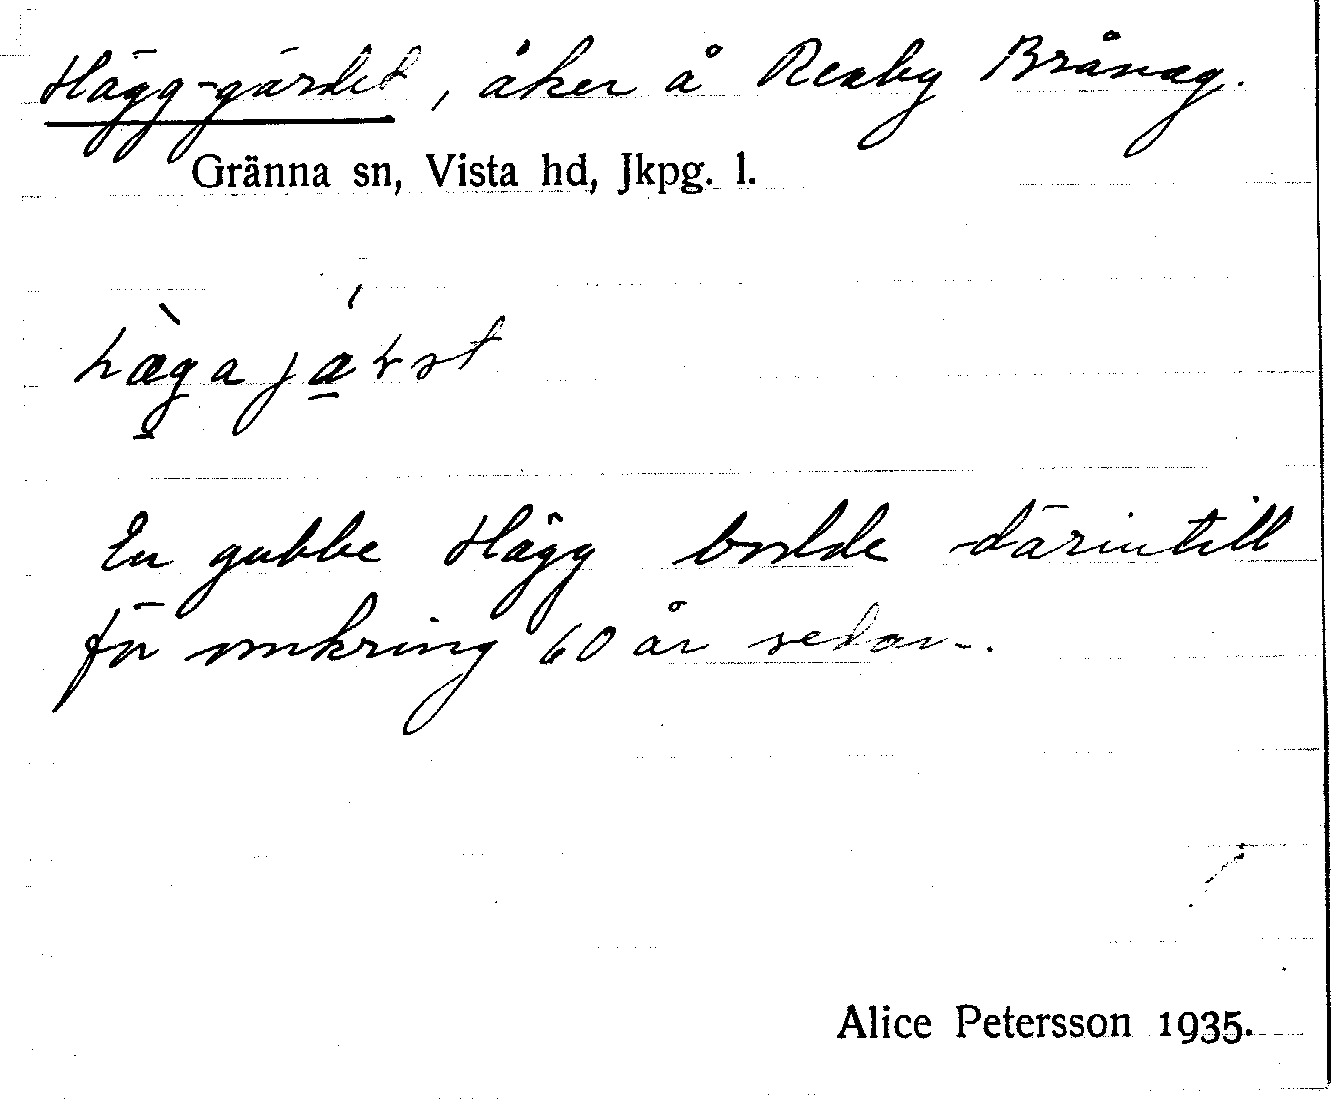 Hägg-gärdet, åker å Reaby Brånag.
Gränna sn, Vista hd, Jkpg. l.
En gubbe Hägg bodde därintill
för omkring 60 år sedan.
Alice Petersson 1935.